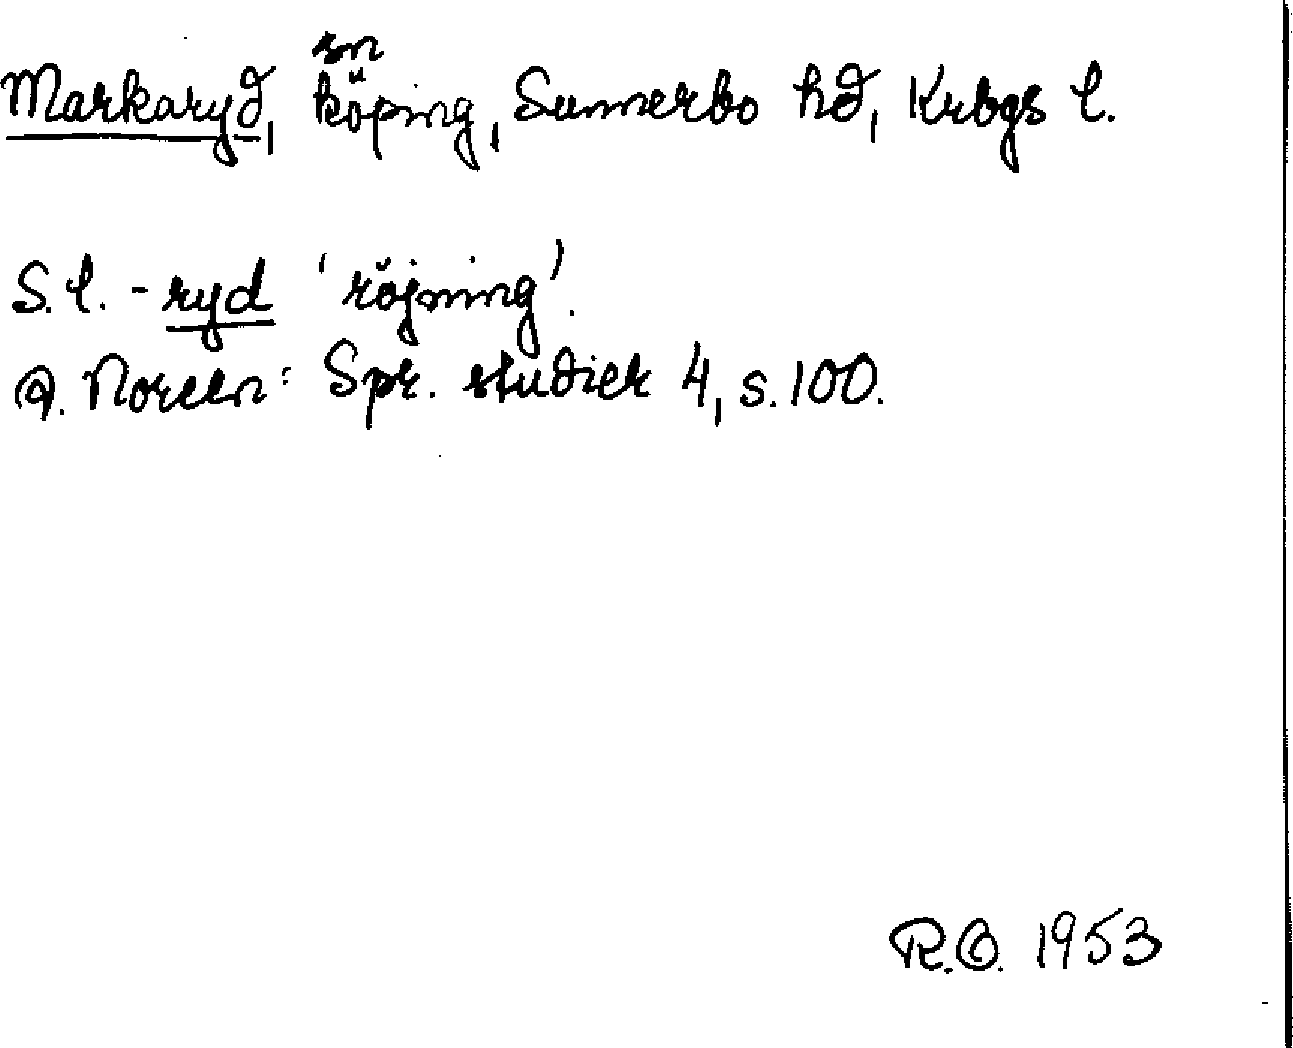 sn
Markaryd, köping, Sunnerbo hd, Krbgs l.
S.l. -ryd 'röjning'.
A. Noreen: Spr. studier 4, s. 100.
R.O. 1953